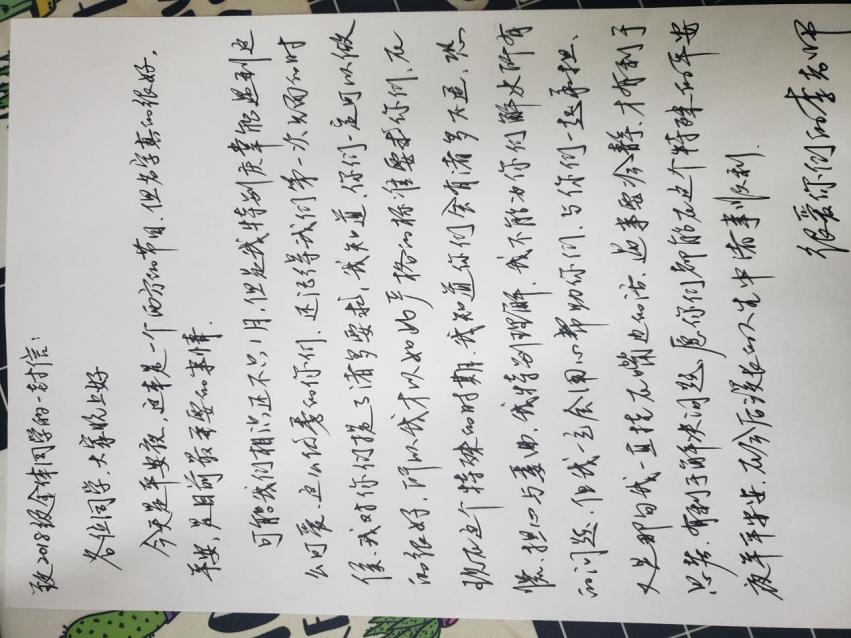 致2018级全体同学的一封信：
各位同学，大家晚上好
今天是平安夜，这本是一个西方的节日，但名字真的很好，
平安，是目前最重要的事情．
可能我们相识还不久1月，但是我特别庆幸能遇到这
么可爱、这么优秀的你们．还记得我们第一次见面的时
候，我对你们提了诸多要求，我知道，你们一定可以做
的很好，所以我才以如此严格的标准要求你们．在
现在这个特殊的时期，我知道你们会有诸多不适、恐
慌、担心与忧虑，我特别理解，我不能为你们解决所有
的问题，但我一定会用心帮助你们、与你们一起承担、
又是那句我一直挂在嘴边的话，遇事要冷静，才有利于
思考，有利于解决问题，愿你们都能在这个特殊的平安
夜平平安安，在今后漫长的人生中诸事顺利．
很爱你们的李老师